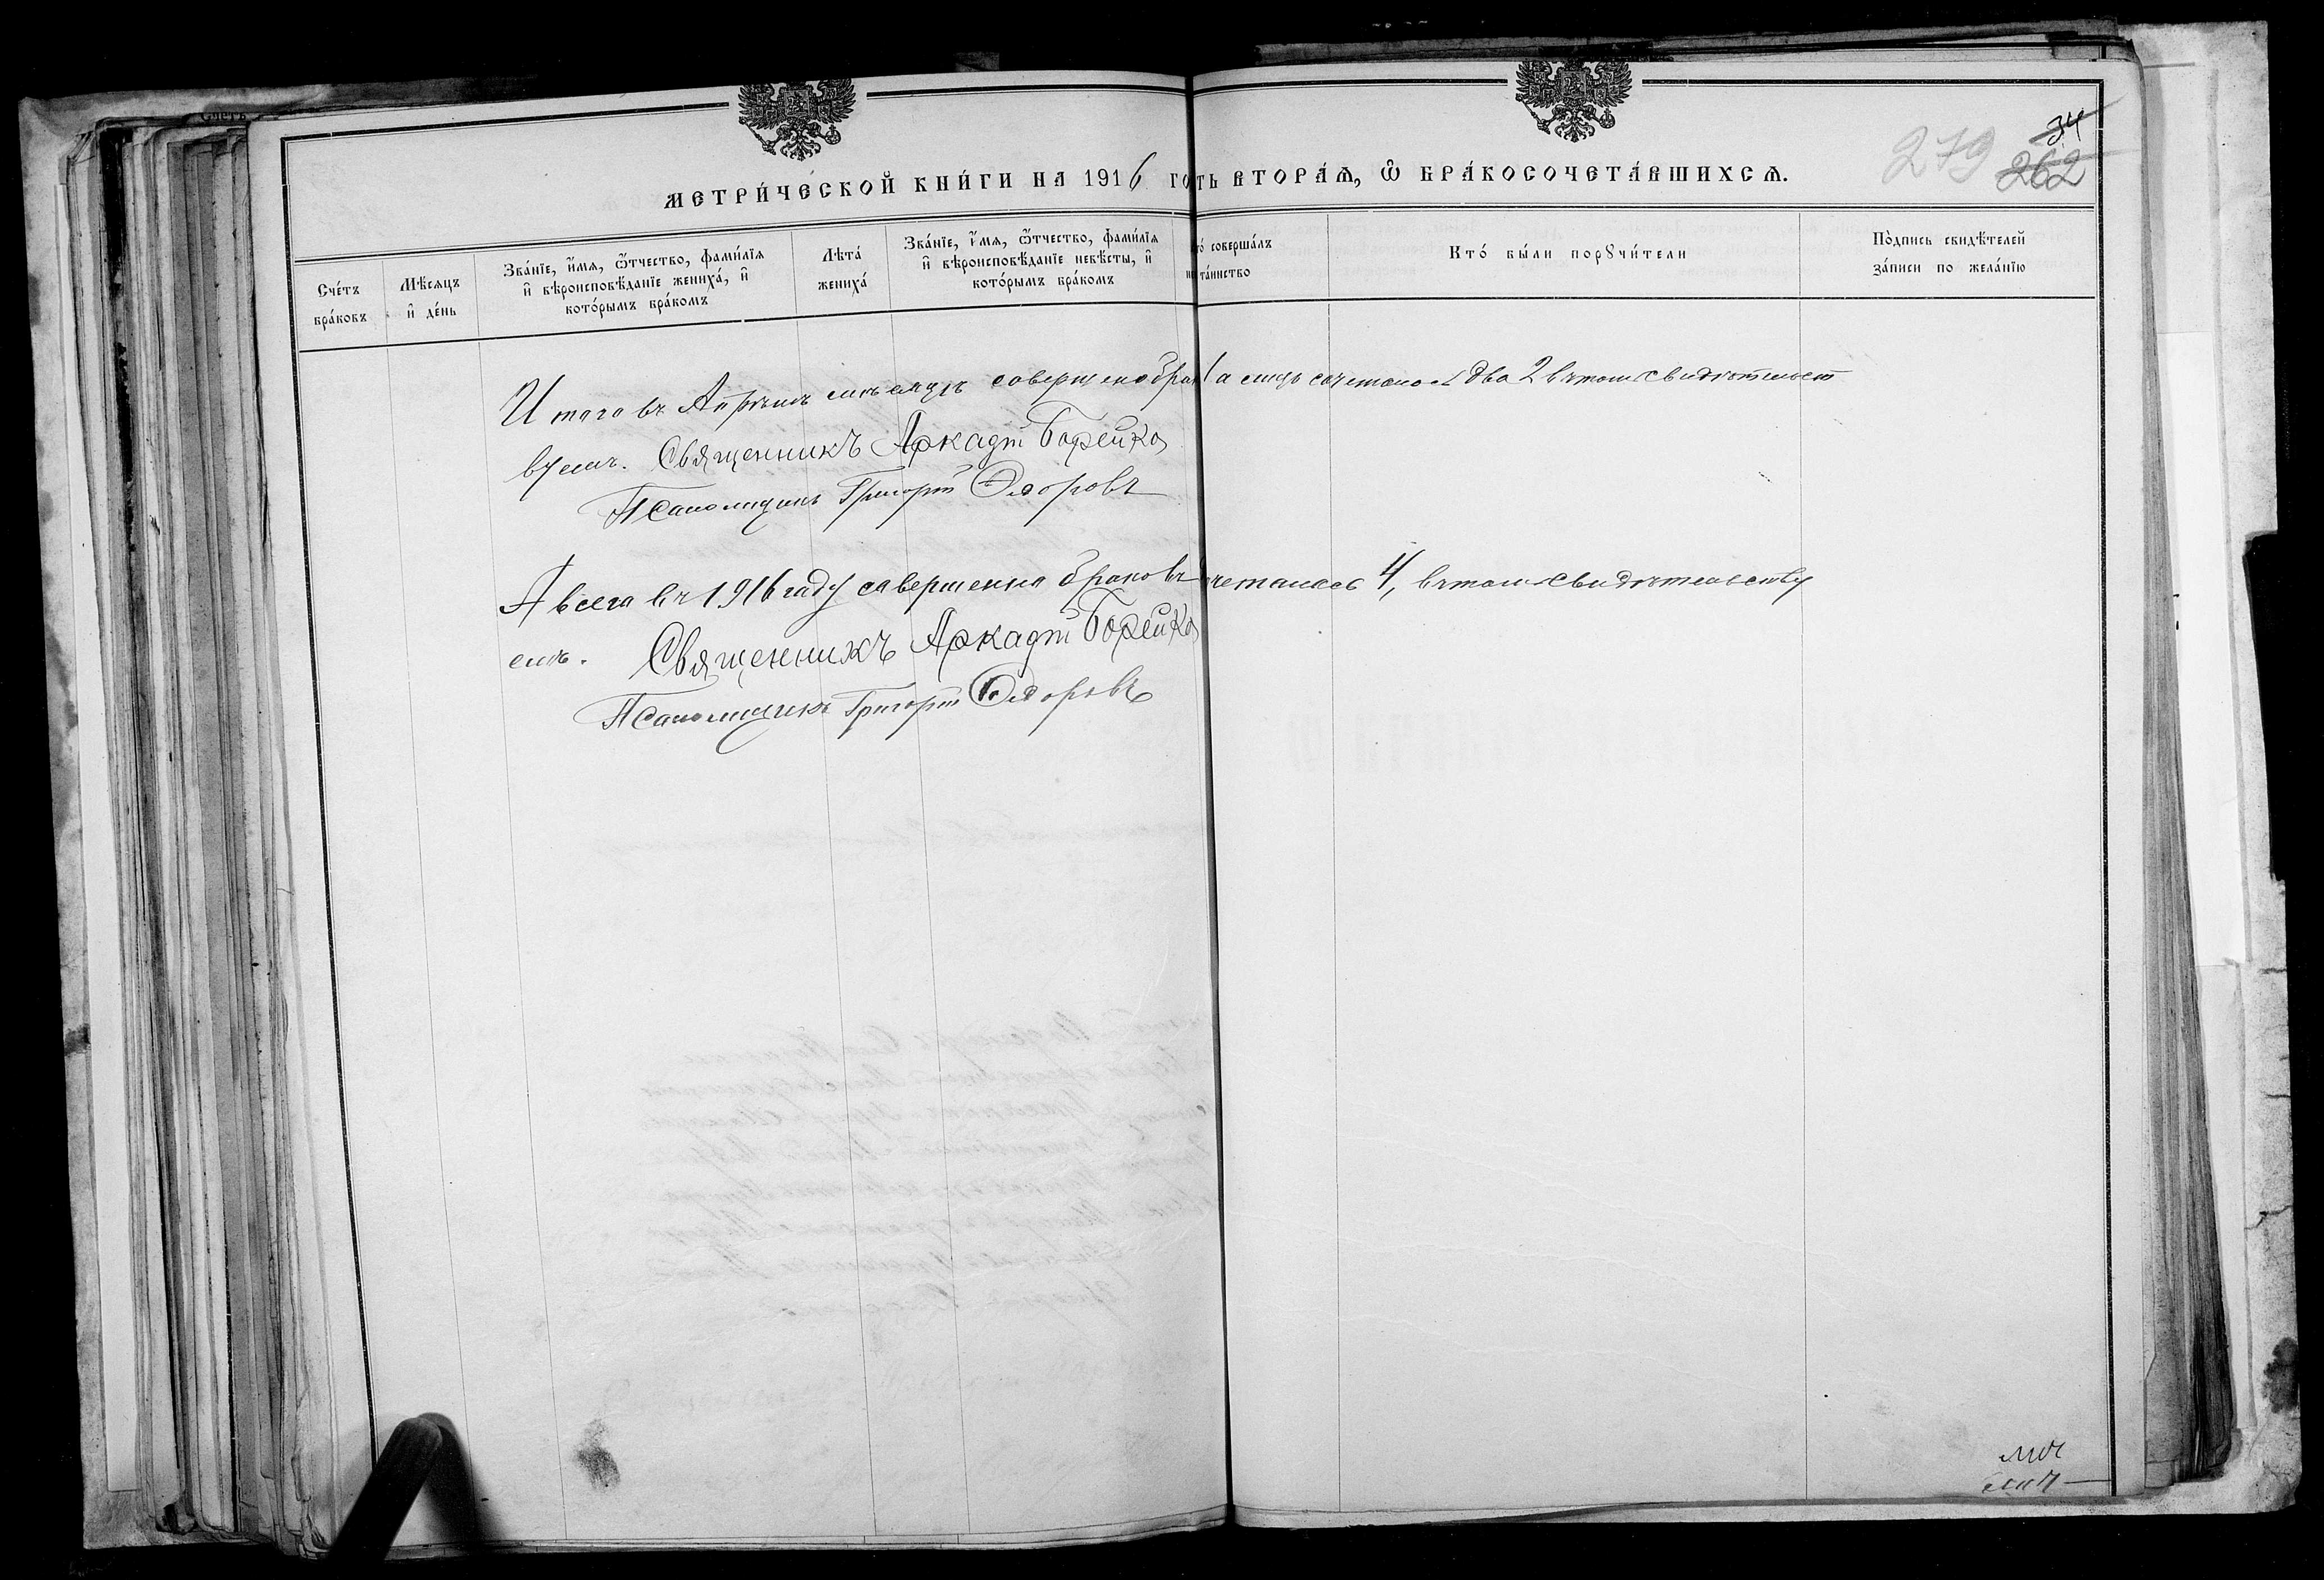 34
279 262
МЕТРИ́ЧЕСКОЙ КНИ́ГИ НА 1916 ГО ТЬ ВТОРА́Ѧ, Ѡ҆ БРА́КОСОЧЕТА́ВШИХСѦ.
Счетъ
Сче́тъ бра́ковъ
Мѣ́сяцъ и҆ де́нь
Зва́нїе, и҆́мя, ѻ҆́тчество, фами́лїя и҆ вѣроисповѣ́данїе жениха́, и҆ кото́рымъ бра́комъ
Лѣта́ жениха́
Зва́нїе, и҆́мя, ѻ҆́тчество, фами́лїя и҆ вѣроисповѣ́данїе невѣ́сты, и҆ кото́рымъ бра́комъ
то́ соверша́лъ та́инство
Кто́ бы́ли порꙋчи́тели
По́дпись свидѣ́телей за́писи по жела́нїю
Итого въ Апрѣлѣ мѣсяцѣ совершено брак 1 а лицъ сочеталось два 2 въ томъ свидѣтельст
вуемъ. Священникъ Аркадій Борейко
Псаломщикъ Григорій Ѳедоровъ
А всего въ 1916 году совершенно браковъ четалось 4, въ томъ свидѣтельству
емъ. Священникъ Аркадій Борейко
Псаломщикъ Григорій Ѳедоровъ